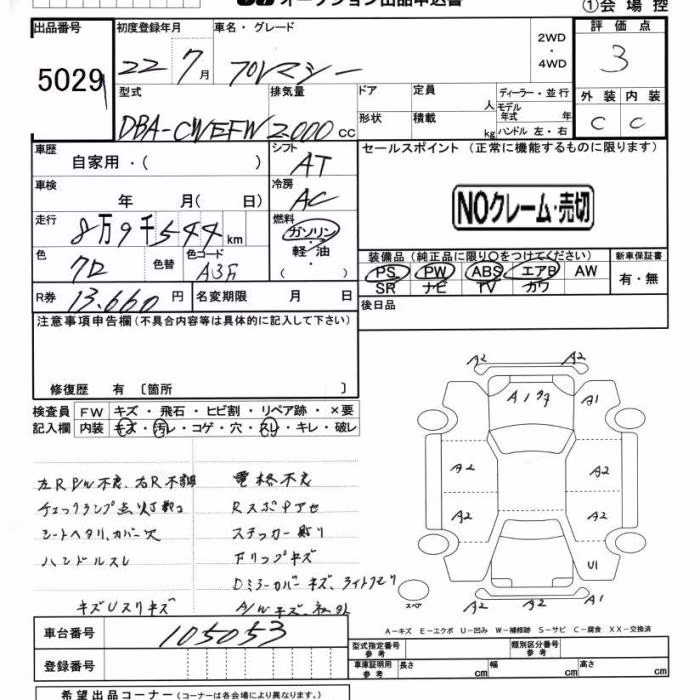 オークション出品申込書
①会場控
出品番号
5029
初度登録年月
22 7月
車名・グレード
プレマシー
2WD
・
4WD
評価点
3
型式
DBA-CWEFW
排気量
2000cc
ドア
定員
人
形状
積載
kg
ディーラー・並行
モデル年式 年
ハンドル 左・右
外装 内装
C C
車歴
自家用・( )
シフト
AT
車検
年 月( 日)
冷房
AC
走行
8万9千544km
燃料
ガソリン・軽油・( )
色
クロ
色替
色コード
A3F
R券
13.660円
名変期限 月 日
セールスポイント(正常に機能するものに限ります)
NOクレーム・売切
装備品(純正品に限り○をつけてください)
新車保証書
PS PW ABS エアB AW
SR ナビ TV カワ
有・無
後日品
注意事項申告欄(不具合内容等は具体的に記入して下さい)
修復歴 有 〔箇所 〕
検査員記入欄
FW キズ・飛石・ヒビ割・リペア跡・×要
内装 キズ・汚レ・コゲ・穴・スレ・キレ・破レ
左R P/W不良、右R不調
チェックランプ点灯
シートヘタリ、カバー穴
ハンドルスレ
キズUスリキズ
電格不良
Rスポ
ステッカー貼り
Fリップキズ
Dミラーカバーキズ、ライトクモリ
A/Wキズ、社外
A2 A2
A1 A1
A2 A2
A2 A2
U1
A2 A1
スペア
A-キズ E-エクボ U-凹み W-補修跡 S-サビ C-腐食 XX-交換済
車台番号
105053
登録番号
型式指定番号 参考
類別区分番号 参考
車庫証明用 参考
長さ cm 幅 cm 高さ cm
希望出品コーナー(コーナーは各会場により異なります。)